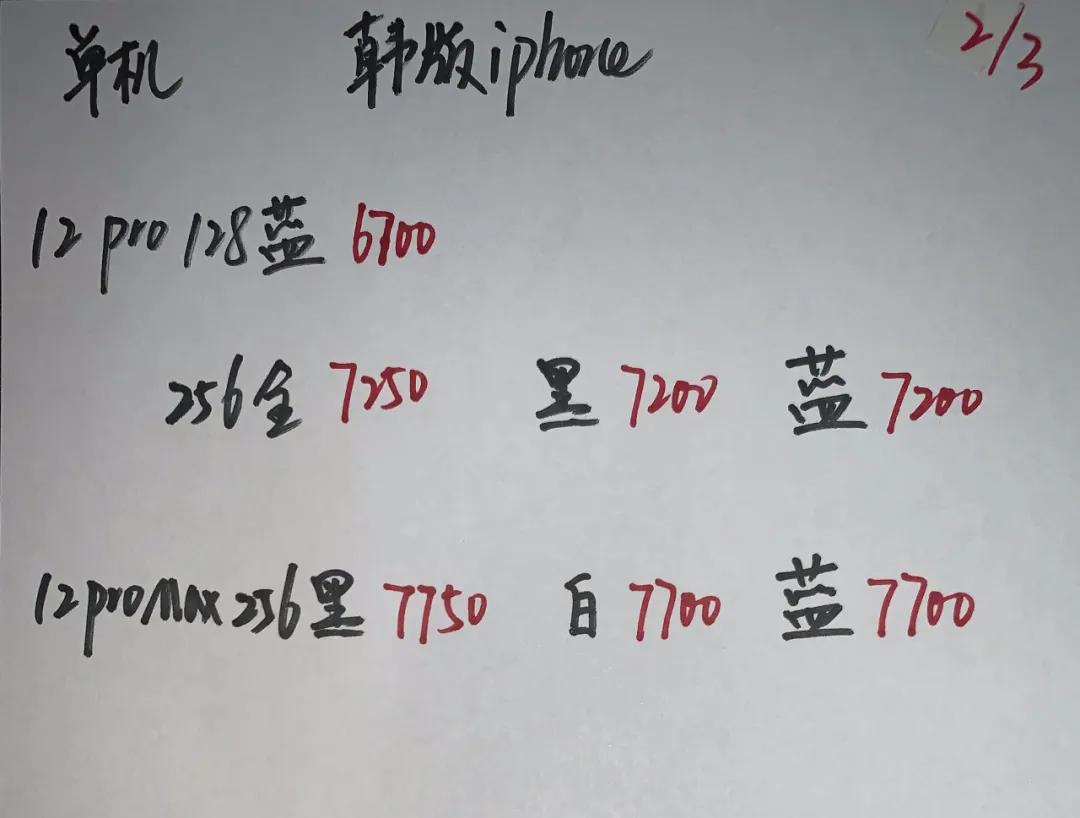 单机 韩版iphone 2/3
12 pro 128蓝 6700
256金 7250 黑 7200 蓝 7200
12 pro Max 256黑 7750 白 7700 蓝 7700